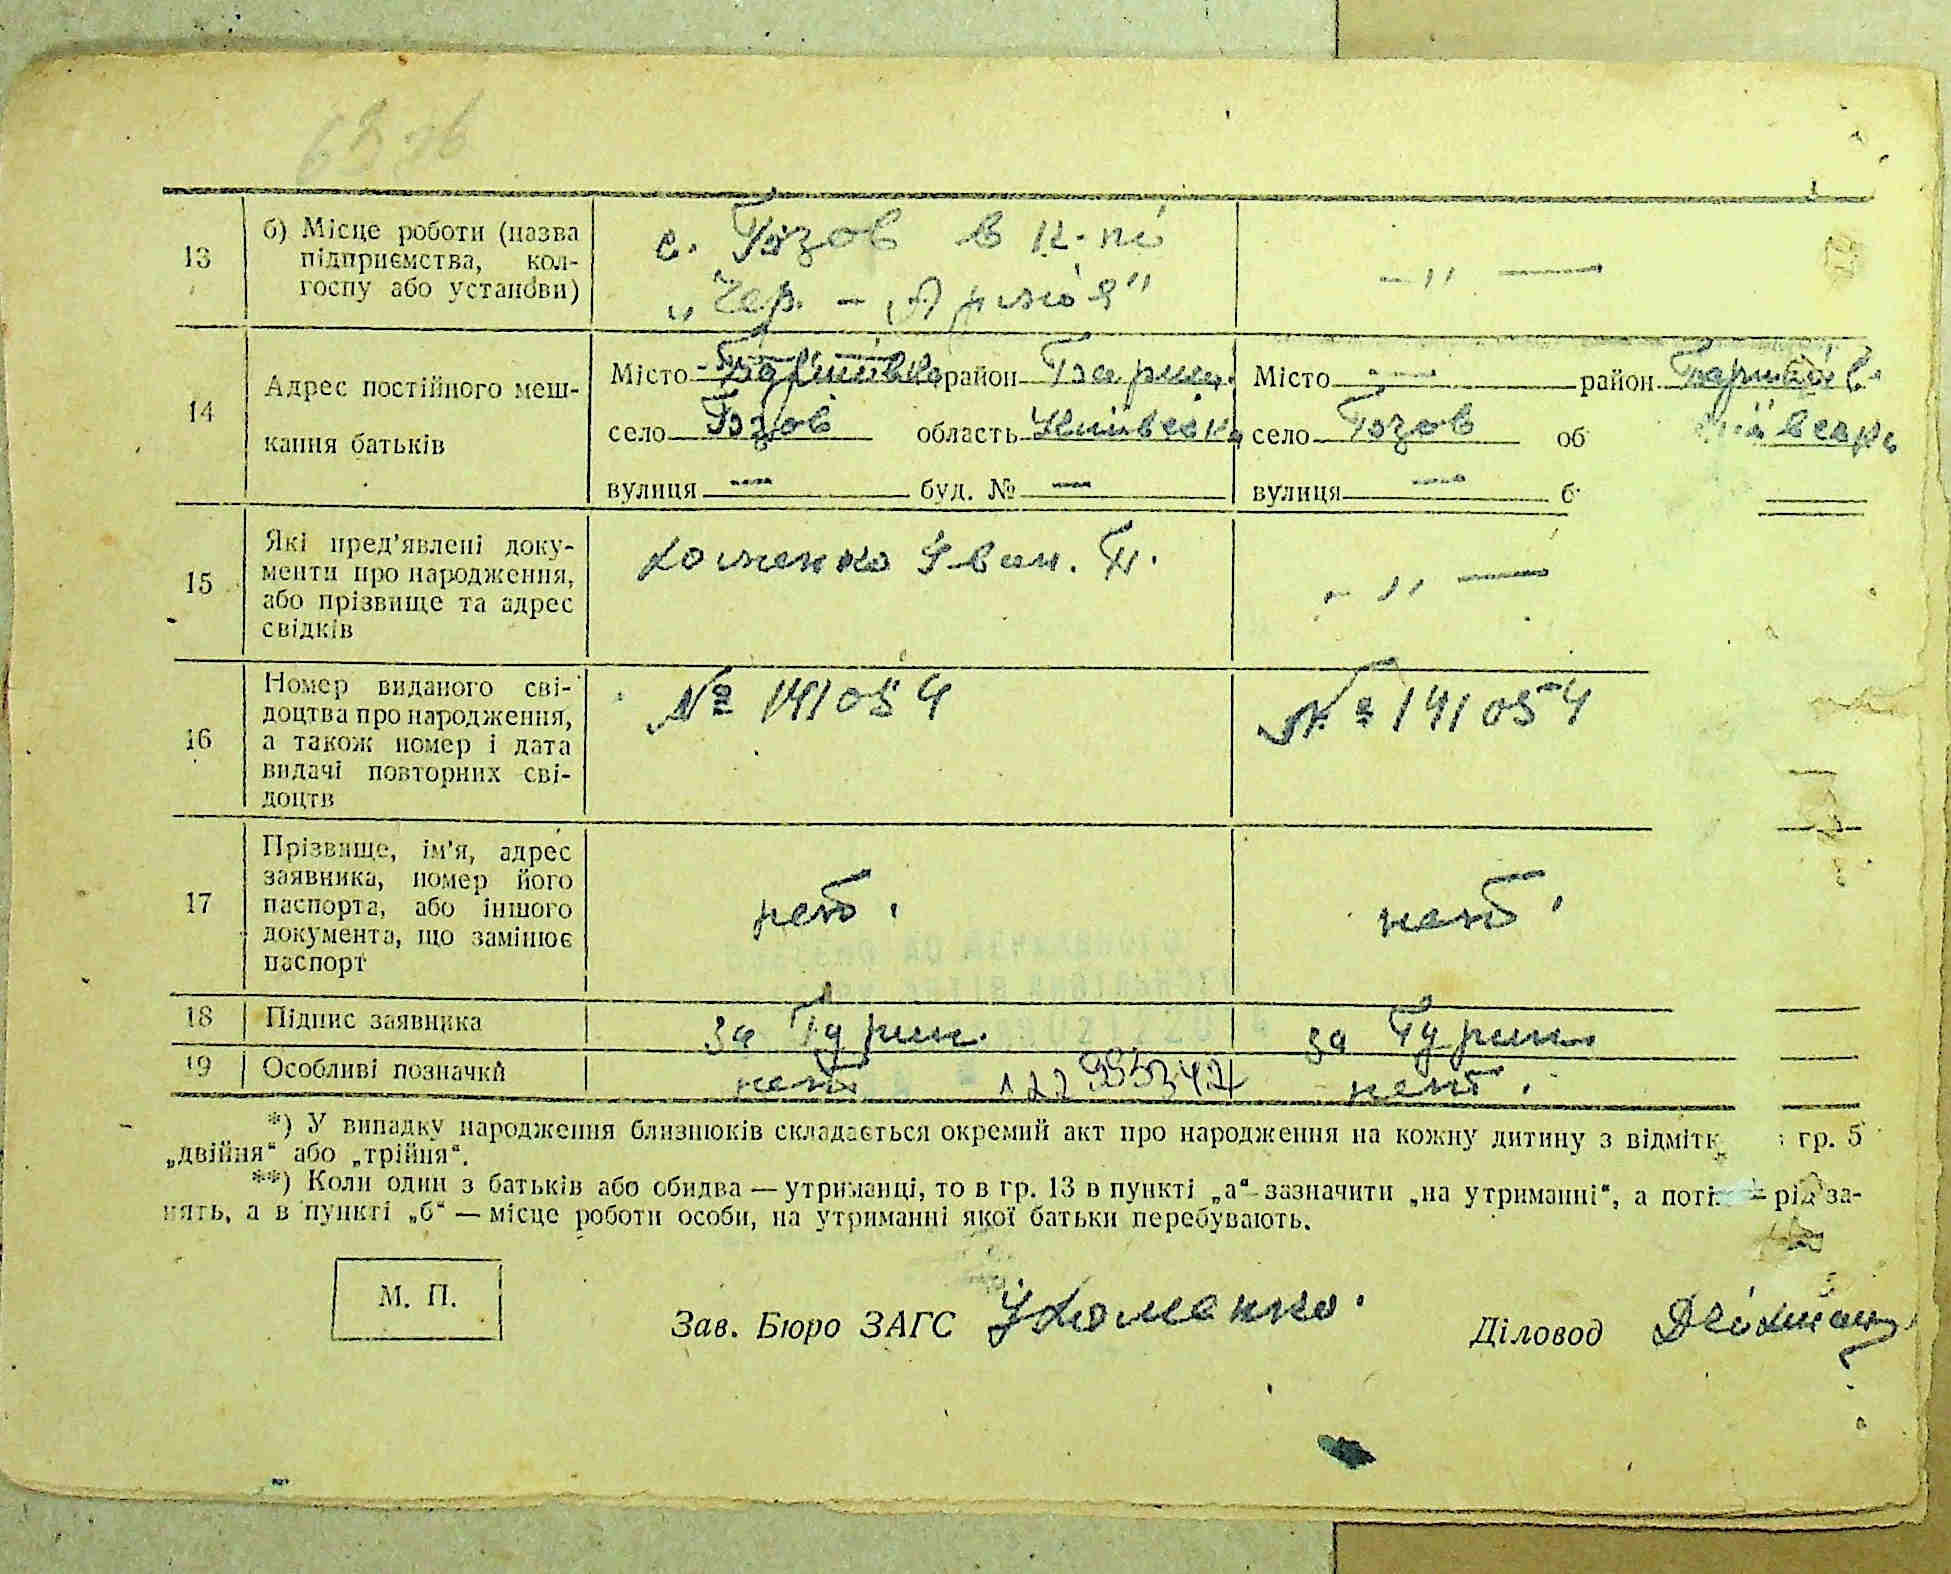 13
б) Місце роботи (назва
підприємства, кол-
госпу або установи)
с. Бзов в к-пі
„Чер. – Армія"
– „ —
14
Адрес постійного меш-
кання батьків
Місто район Бариш.
село Бзов область Київськ
вулиця — буд. № —
Місто — район Баришів.
село Бзов об
вулиця — б
15
Які пред'явлені доку-
менти про народження,
або прізвище та адрес
свідків
Хоменко Іван. П.
– „ —
16
Номер виданого сві-
доцтва про народження,
а також номер і дата
видачі повторних сві-
доцтв
№ 141054
№ 141054
17
Прізвище, ім'я, адрес
заявника, номер його
паспорта, або іншого
документа, що замінює
паспорт
нет.
нет.
18
Підпис заявника
за Гурин.
за Гурин.
19
Особливі позначки
нет
нет.
*) У випадку народження близнюків складається окремий акт про народження на кожну дитину з відмітк гр. 5
„двійня" або „трійня".
**) Коли один з батьків або обидва — утриманці, то в гр. 13 в пункті „а" зазначити „на утриманні", а потім рід за-
нять, а в пункті „б" — місце роботи особи, на утриманні якої батьки перебувають.
М. П.
Зав. Бюро ЗАГС Хоменко.
Діловод